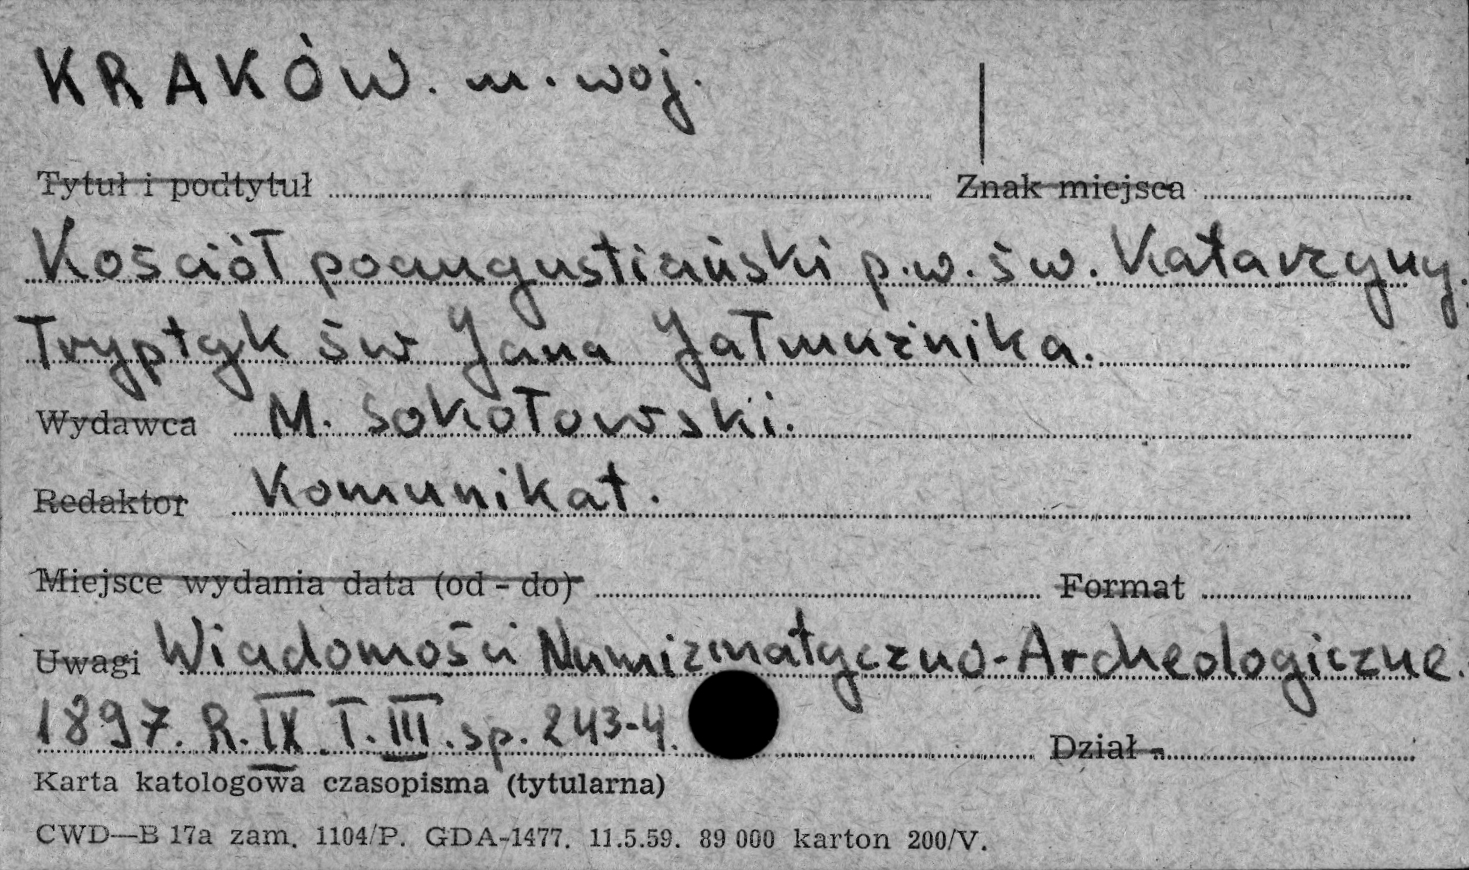 KRAKÓW. m. woj.
Tytuł i podtytuł Znak miejsca
Kościół poaugustiański p.w. św. Katarzyny.
Tryptyk św Jana Jałmużnika.
Wydawca M. Sokołowski.
Redaktor Komunikat.
Miejsce wydania data (od - do) Format
Uwagi Wiadomości Numizmatyczno-Archeologiczne.
1897. R. IX T. III. sp. 243-4. Dział
Karta katologowa czasopisma (tytularna)
CWD—B 17a zam. 1104/P. GDA-1477. 11.5.59. 89 000 karton 200/V.